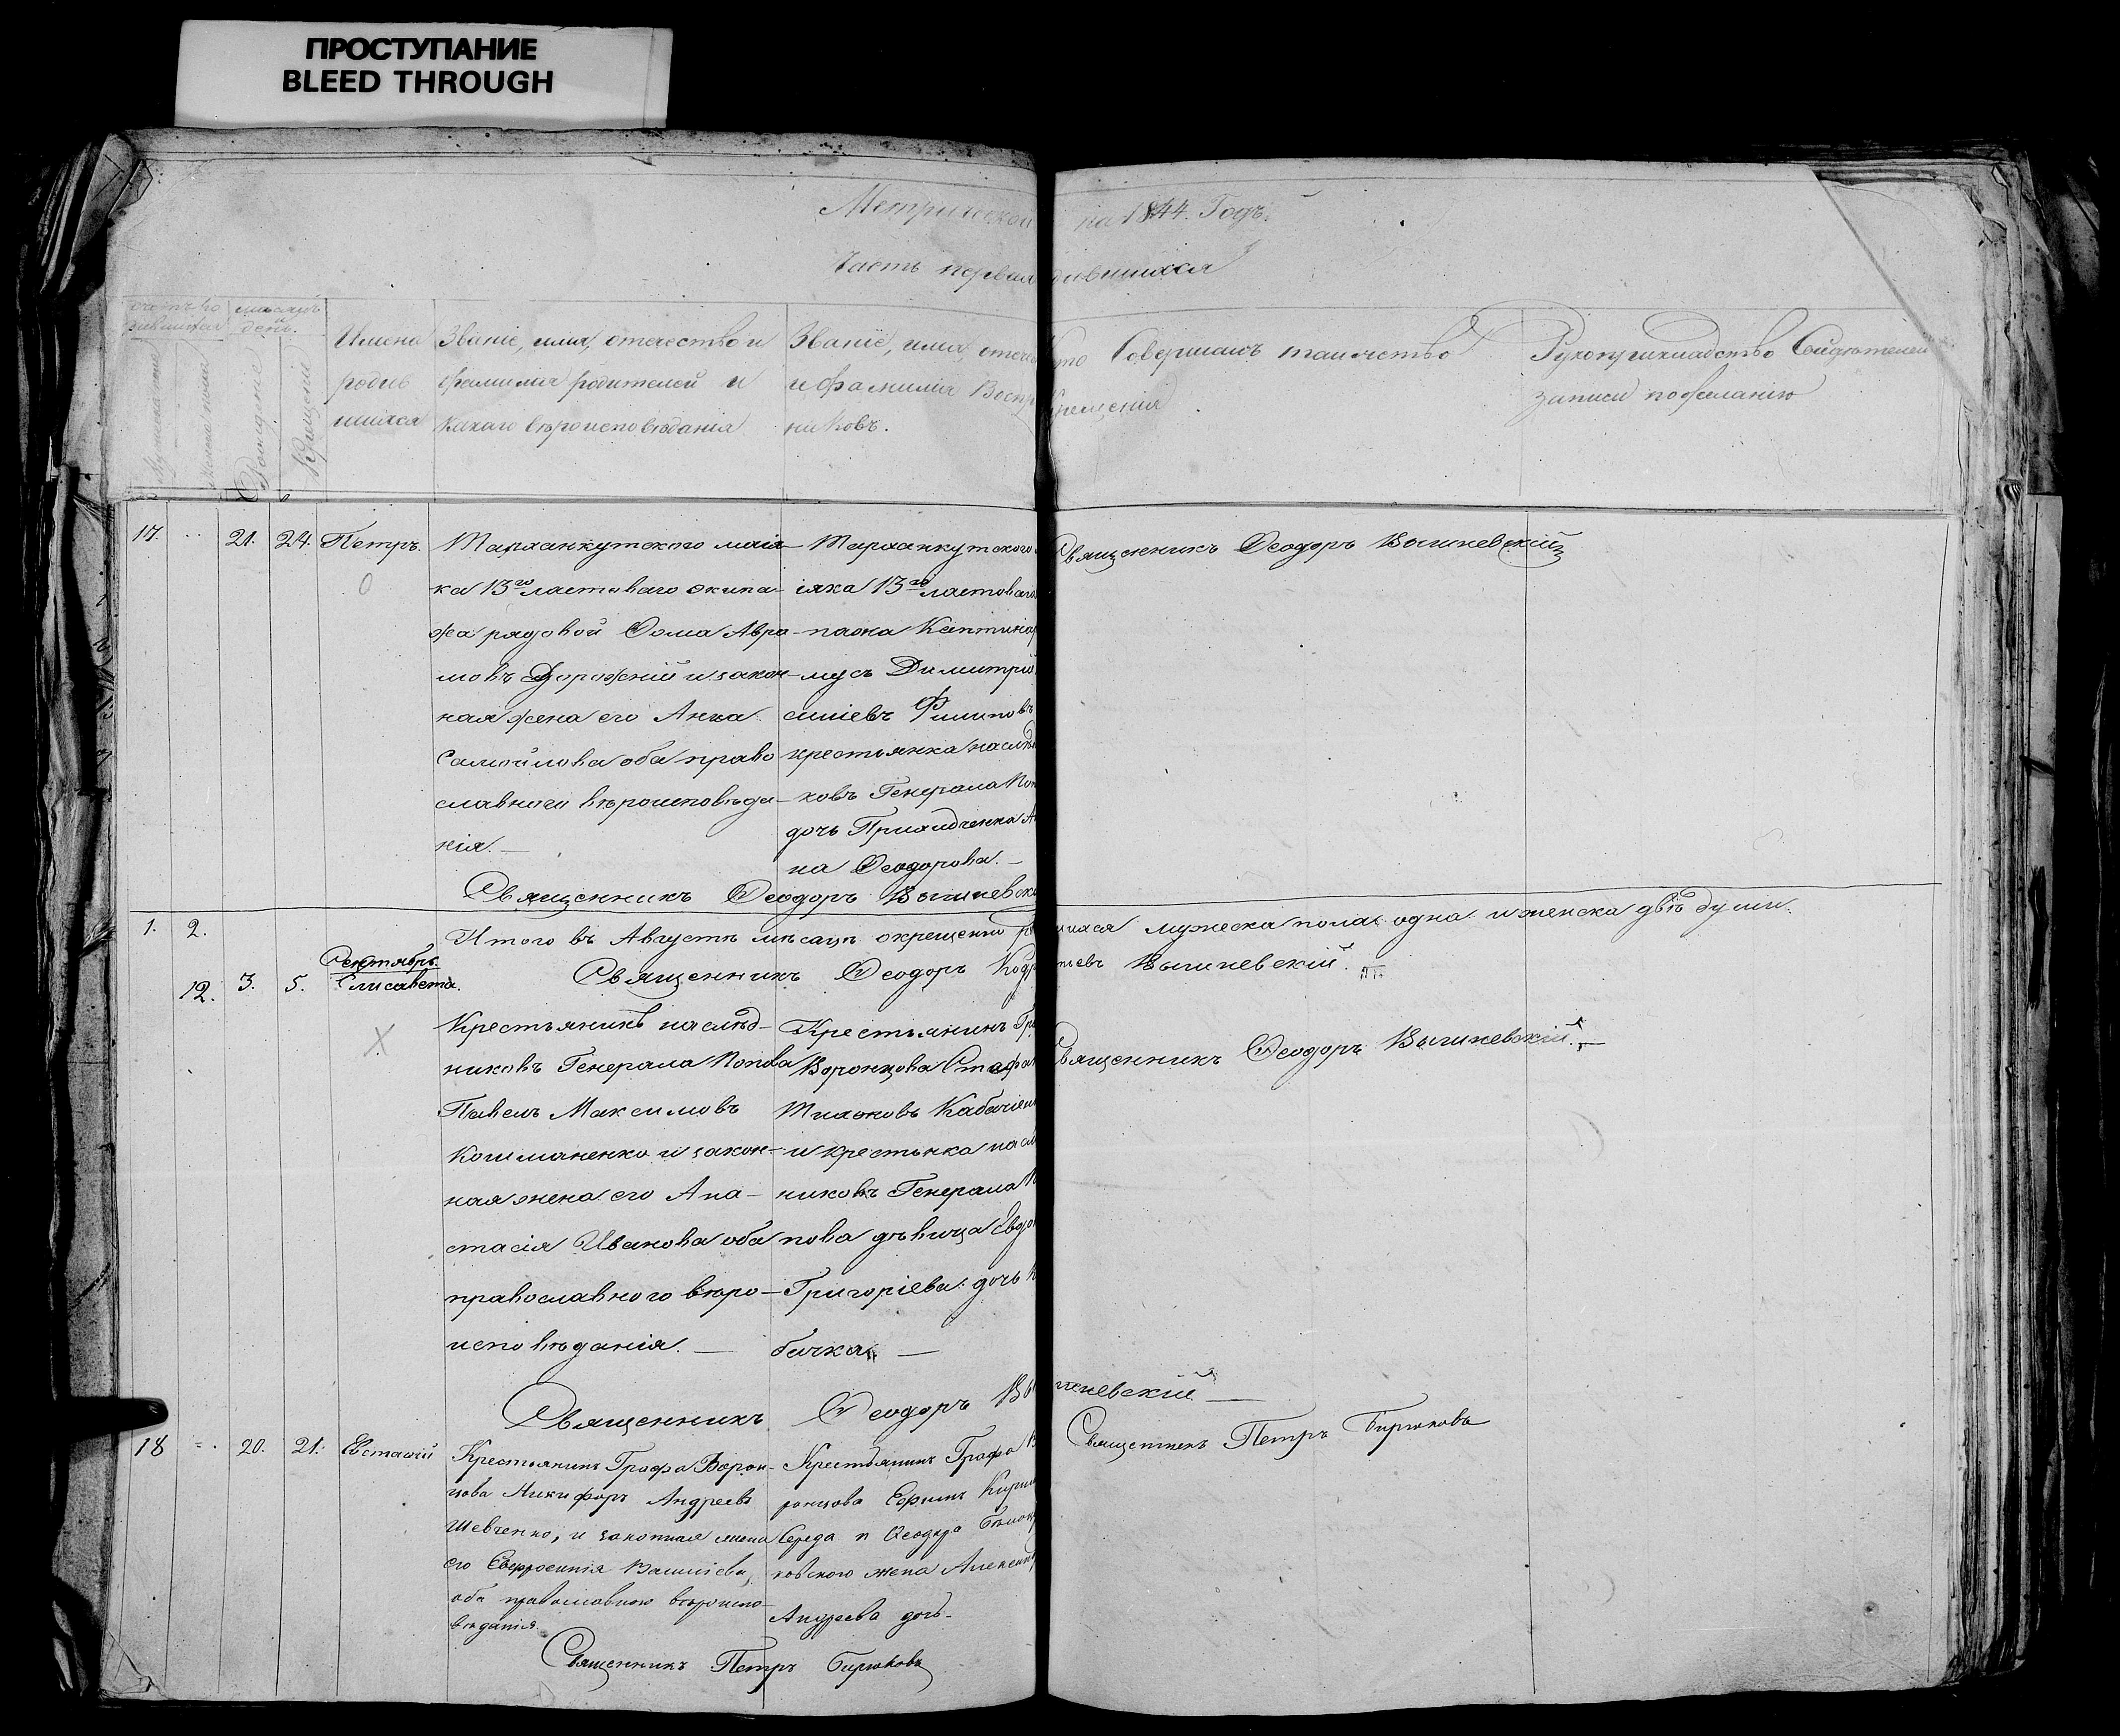 ПРОСТУПАНИЕ
BLEED THROUGH
Метрической на 1844. Годъ.
Часть первая дившихся
мѣсяцъ и день.
Рожденіе
Крещенія
Имена родив шихся
Званіе, имя, отечество и
фамилія родителей и
какаго вѣроисповѣданія
Званіе, имя, отече
и фамилія Воспр
никовъ.
то Совершалъ таинство
крещенія
Рукоприкладство Свидѣтелей
записи по желанію
17. 21. 24. Петръ.
Тарханкутского маія
ка 13го ластоваго экипа
жа рядовой Ѳома Авра
мовъ Дорожній и закон
ная жена его Анна
Самойлова оба право
славного вѣроисповѣда
нія.
Тарханкутского
іяка 13го ластоваго
Димитрій
силіевъ Филиповъ
крестьянка наслѣд
ковъ Генерала Поп
дочь
на Ѳеодорова.
Священникъ Ѳеодоръ Вышневскій
Священникъ Ѳеодоръ Вышневск
1. 2.
Итого въ Августѣ мѣсацѣ окрещенно р шихся мужеска пола одна и женска двѣ души.
Священникъ Ѳеодоръ Вышневскій.
Сентябрь.
12. 3. 5. Елисавета.
Крестьянинъ наслѣд
никовъ Генерала Попова
Павелъ Максимовъ
Кошманенко и закон
ная жена его Ана
стасія Иванова оба
православного вѣро
исповѣданія.
Крестьянинъ Гр
Воронцова Стефан
Тихоновъ
и крестьнка насл
никовъ Генерала П
пова дѣвица Евдо
Григоріева дочь
бачка
Священникъ Ѳеодоръ Вышневскій.
Священникъ Ѳеодоръ Вы шневскій
18 20. 21. Евстафій
Крестьянинъ Графа Ворон
цова Никифоръ Андреевъ
Шевченко, и законная жена
его Евфросинія Василіева,
оба православного вѣроиспо
вѣданія.
Крестьянинъ Графа В
ронцова Ефимъ Кирил
Середа и Ѳеодора
ковского жена Александ
Андреева дочь
Священникъ Петръ Бирюковъ
Священникъ Петръ Бирюковъ